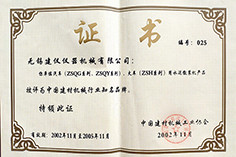 证书
编号：025
无锡建仪仪器机械有限公司：
(ZSQG系列、ZSQY系列)、(ZSH系列)
被评为中国建材机械行业知名品牌。
特颁此证
中国建材机械工业协会
有效期：2002年11月至2005年11月
2002年11月